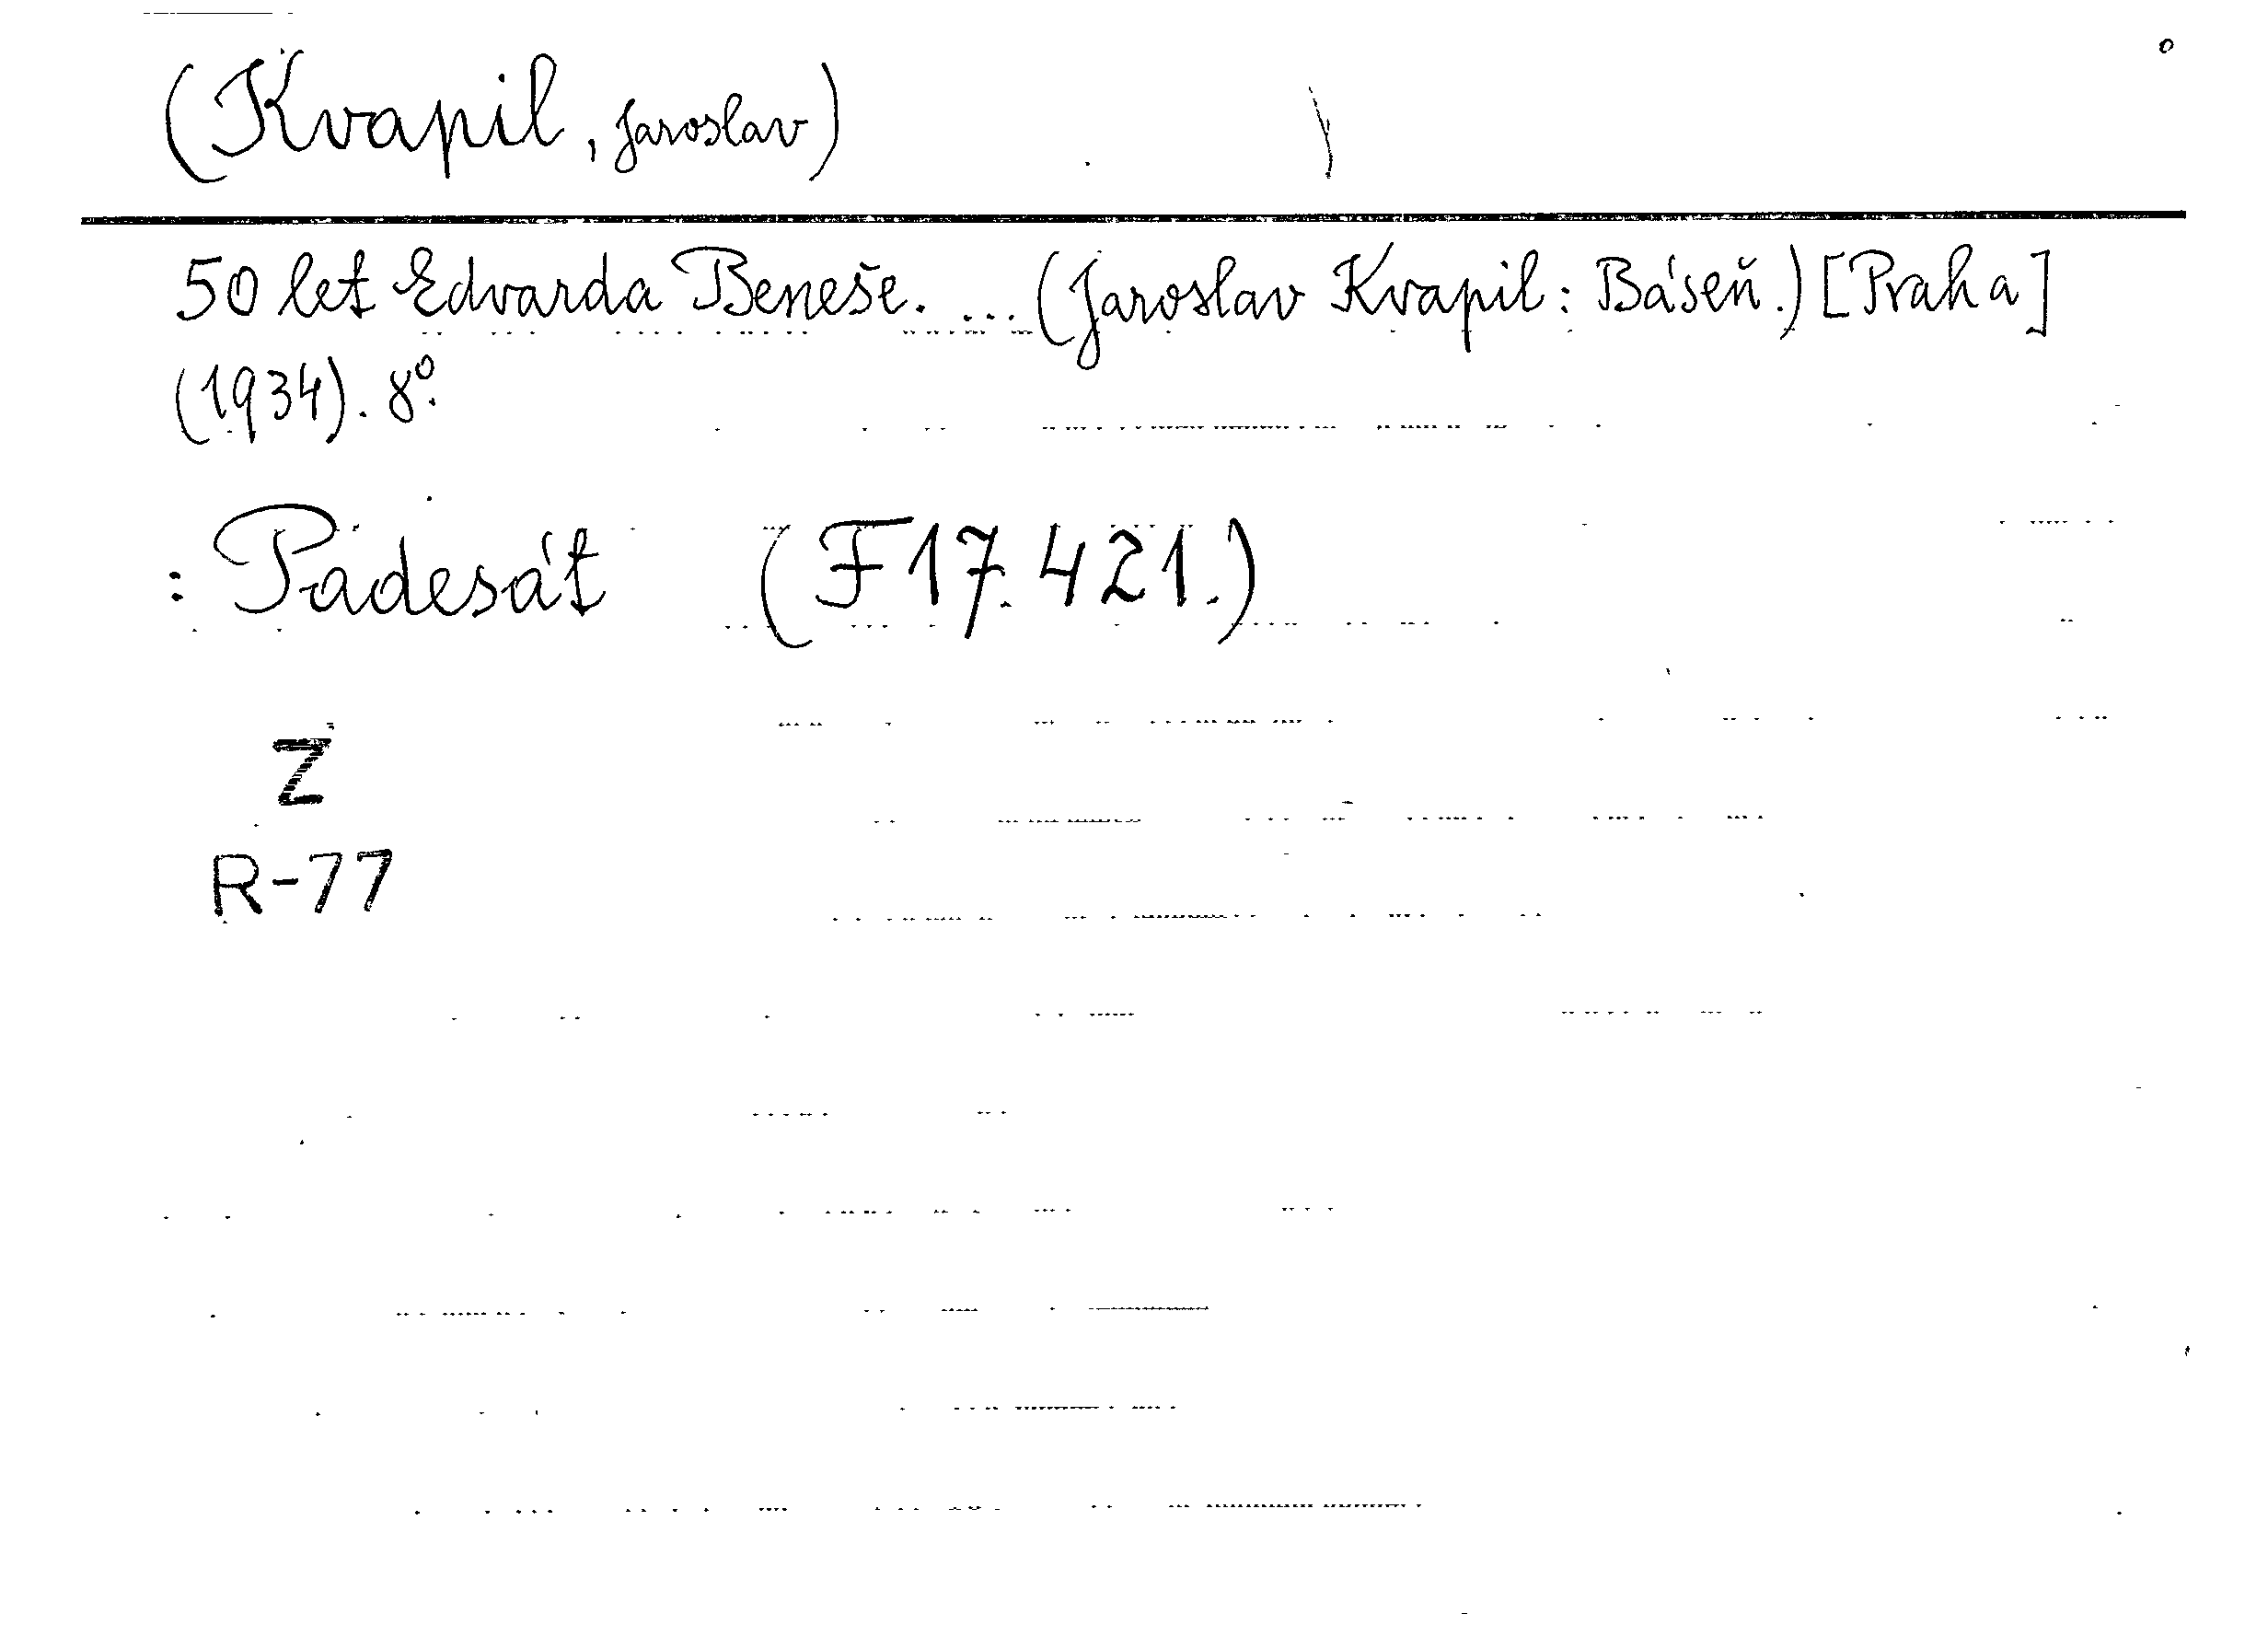 (Kvapil, Jaroslav)
50 let Edvarda Beneše. ... (Jaroslav Kvapil: Báseň.) [Praha]
(1934). 8°.
: Padesát (F 17.421.)
Z
R-77